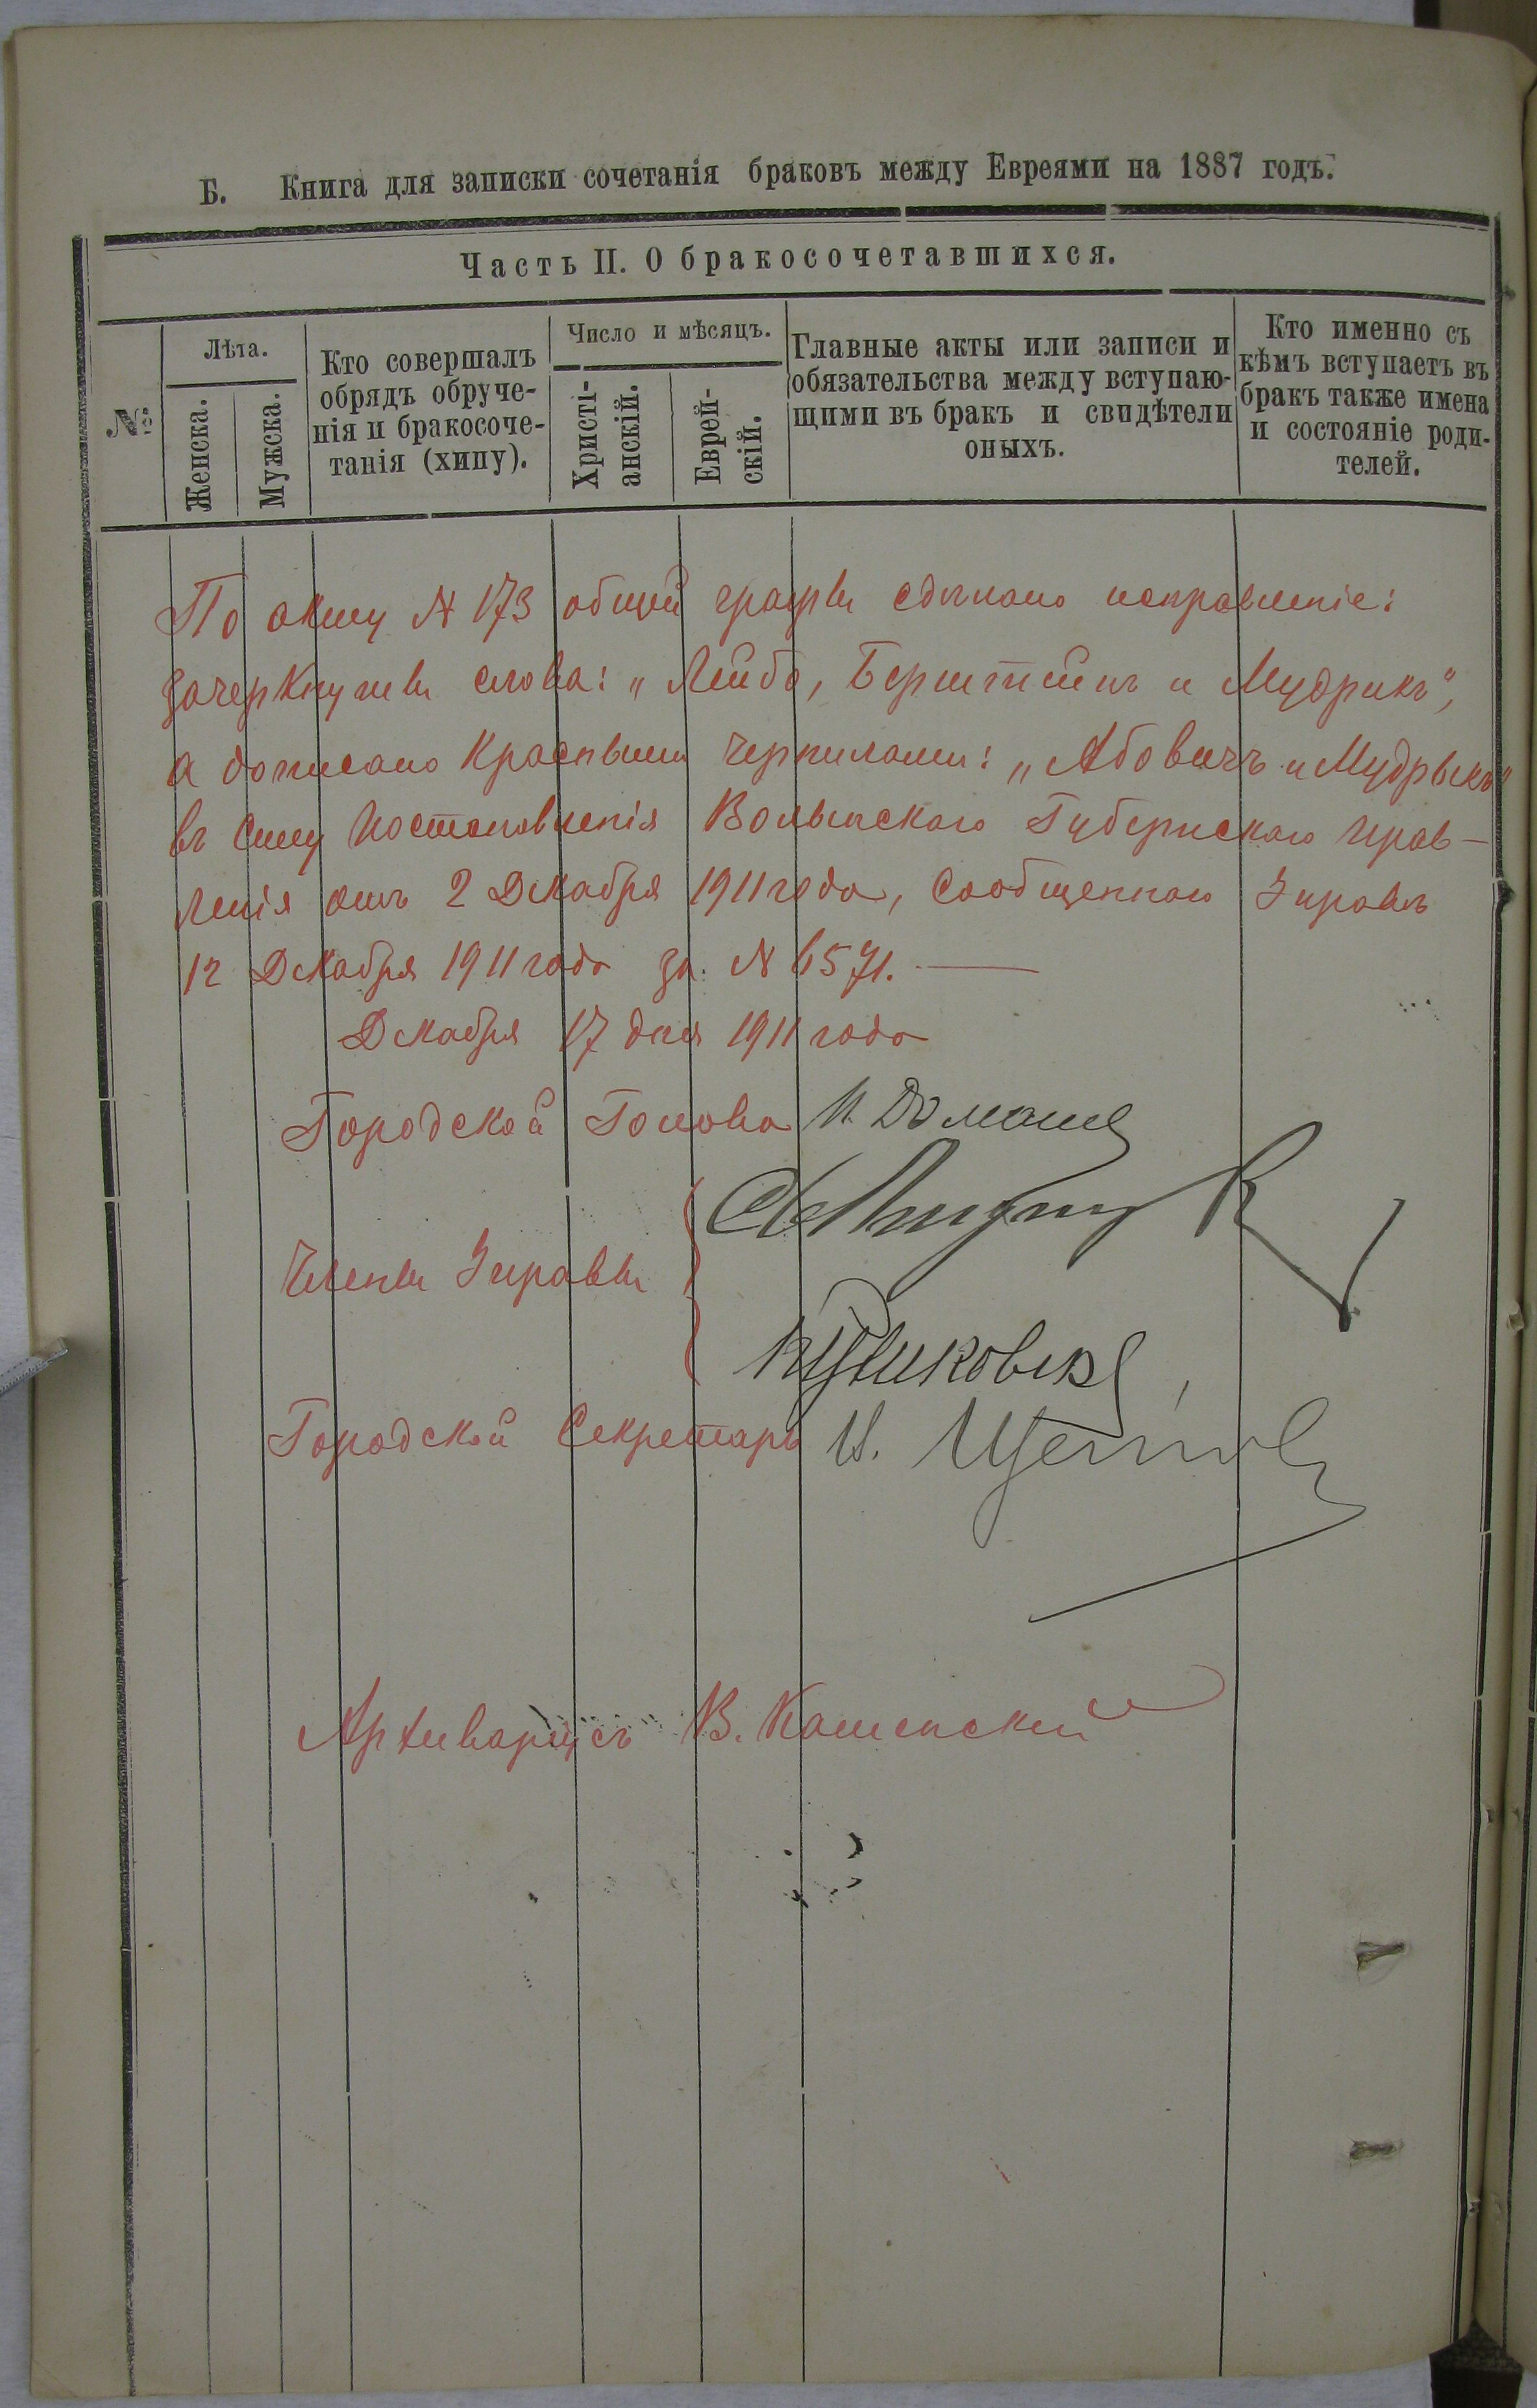 Б. Книга для записки сочетанія браковъ между Евреями на 1887 годъ.
Часть II. О бракосочетавшихся.
№
Лѣта.
Женска.
Мужска.
Кто совершалъ
обрядъ обруче-
нія и бракосоче-
танія (хипу).
Число и мѣсяцъ.
Христі-
анскій.
Еврей-
скій.
Главные акты или записи и
обязательства между вступаю-
щими въ бракъ и свидѣтели
оныхъ.
Кто именно съ
кѣмъ вступаетъ въ
бракъ также имена
и состояніе роди-
телей.
По акту N 173 общей графы сдѣлано исправленіе:
зачеркнуты слова: „Лейба, Берштейнъ и Мудрикъ",
а дописано красными чернилами: „Абовичъ и Мудрыкъ"
въ силу постановленія Волынскаго Губернскаго Прав-
ленія отъ 2 Декабря 1911 года, сообщеннаго Управѣ
12 Декабря 1911 года за N 6571.
Декабря 17 дня 1911 года
Городской Голова
Члены Управы
Городской Секретарь И.
Архиваріусъ В. Каменский